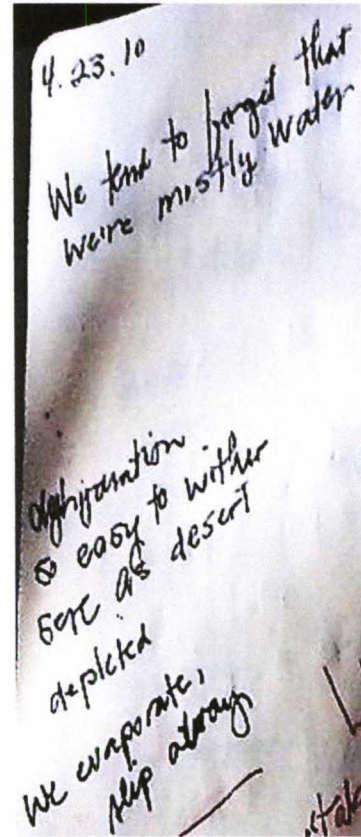 4.23.10
We tend to forget that
we're mostly water
dehydration
so easy to wither
sere as desert
depleted
We evaporate,
slip away